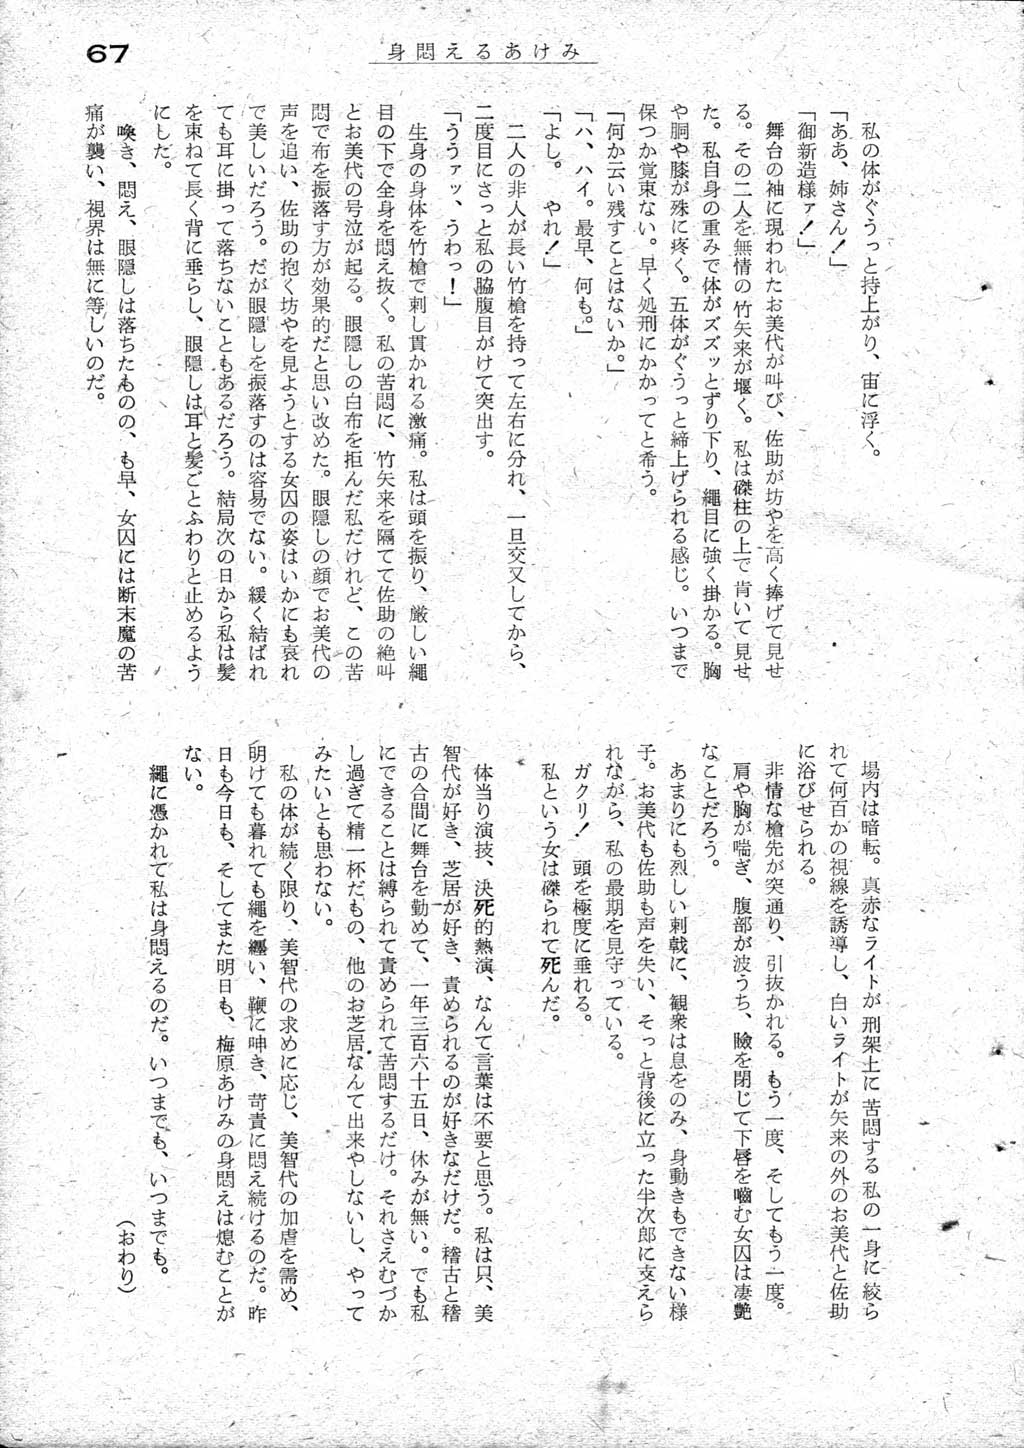 67
身悶えるあけみ
私の体がぐうっと持上がり、宙に浮く。
「ああ、姉さん！」
「御新造様ァ！」
舞台の袖に現われたお美代が叫び、佐助が坊やを高く捧げて見せ
る。その二人を無情の竹矢来が堰く。私は磔柱の上で肯いて見せ
た。私自身の重みで体がズズッとずり下り、縄目に強く掛かる。胸
や胴や膝が殊に疼く。五体がぐうっと締上げられる感じ。いつまで
保つか覚束ない。早く処刑にかかってと希う。
「何か云い残すことはないか。」
「ハ、ハイ。最早、何も。」
「よし。やれ！」
二人の非人が長い竹槍を持って左右に分れ、一旦交叉してから、
二度目にさっと私の脇腹目がけて突出す。
「ううァッ、うわっ！」
生身の身体を竹槍で刺し貫かれる激痛。私は頭を振り、厳しい縄
目の下で全身を悶え抜く。私の苦悶に、竹矢来を隔てて佐助の絶叫
とお美代の号泣が起る。眼隠しの白布を拒んだ私だけれど、この苦
悶で布を振落す方が効果的だと思い改めた。眼隠しの顔でお美代の
声を追い、佐助の抱く坊やを見ようとする女囚の姿はいかにも哀れ
で美しいだろう。だが眼隠しを振落すのは容易でない。緩く結ばれ
ても耳に掛って落ちないこともあるだろう。結局次の日から私は髪
を束ねて長く背に垂らし、眼隠しは耳と髪ごとふわりと止めるよう
にした。
喚き、悶え、眼隠しは落ちたものの、も早、女囚には断末魔の苦
痛が襲い、視界は無に等しいのだ。
場内は暗転。真赤なライトが刑架上に苦悶する私の一身に絞ら
れて何百かの視線を誘導し、白いライトが矢来の外のお美代と佐助
に浴びせられる。
非情な槍先が突通り、引抜かれる。もう一度、そしてもう一度。
肩や胸が喘ぎ、腹部が波うち、瞼を閉じて下唇を嚙む女囚は凄艶
なことだろう。
あまりにも烈しい刺戟に、観衆は息をのみ、身動きもできない様
子。お美代も佐助も声を失い、そっと背後に立った半次郎に支えら
れながら、私の最期を見守っている。
ガクリ！　頭を極度に垂れる。
私という女は磔られて死んだ。
体当り演技、決死的熱演、なんて言葉は不要と思う。私は只、美
智代が好き、芝居が好き、責められるのが好きなだけだ。稽古と稽
古の合間に舞台を勤めて、一年三百六十五日、休みが無い。でも私
にできることは縛られて責められて苦悶するだけ。それさえむづか
し過ぎて精一杯だもの、他のお芝居なんて出来やしないし、やって
みたいとも思わない。
私の体が続く限り、美智代の求めに応じ、美智代の加虐を需め、
明けても暮れても縄を纒い、鞭に呻き、苛責に悶え続けるのだ。昨
日も今日も、そしてまた明日も、梅原あけみの身悶えは熄むことが
ない。
縄に憑かれて私は身悶えるのだ。いつまでも、いつまでも。
（おわり）